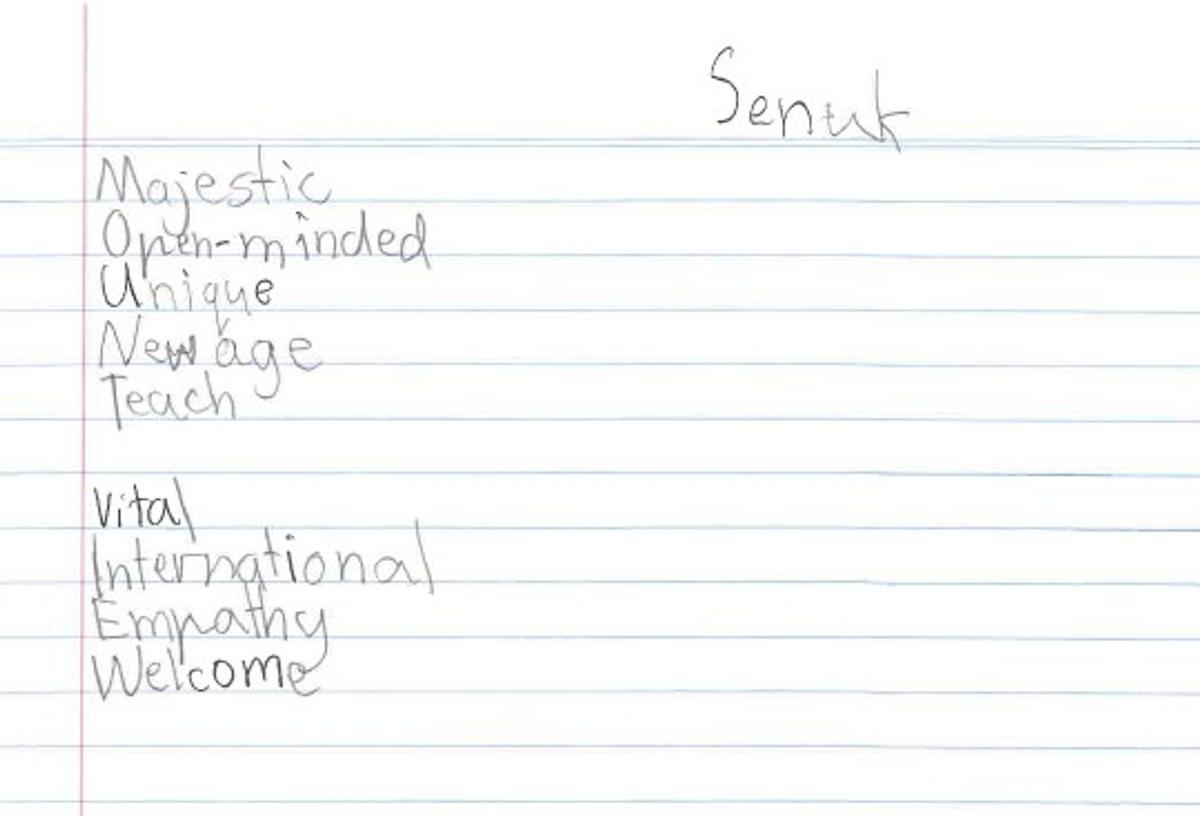 Senuk
Majestic
Open-minded
Unique
New age
Teach
Vital
International
Empathy
Welcome